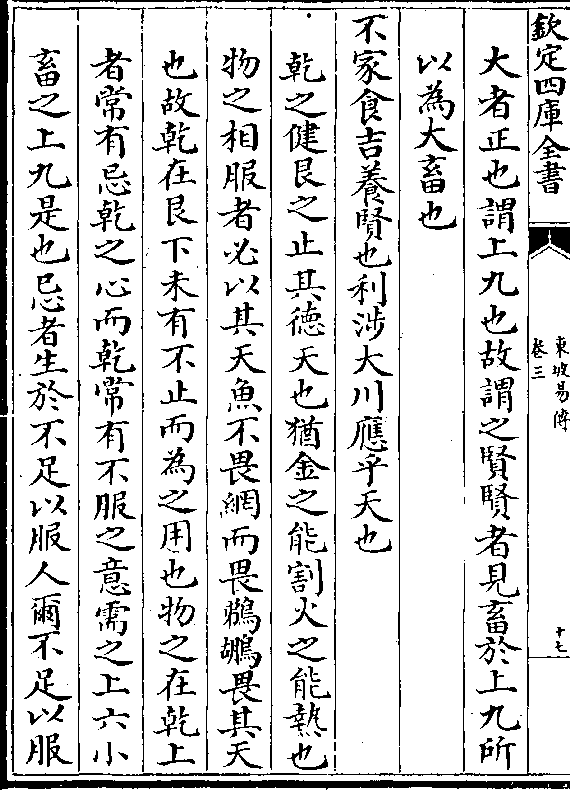 欽定四庫全書
東坡易傳
卷三
十七
大者正也謂上九也故謂之賢賢者見畜於上九所
以為大畜也
不家食吉養賢也利涉大川應乎天也
乾之健艮之止其德天也猶金之能割火之能熱也
物之相服者必以其天魚不畏網而畏鵜鶘畏其天
也故乾在艮下未有不止而為之用也物之在乾上
者常有忌乾之心而乾常有不服之意需之上六小
畜之上九是也忌者生於不足以服人爾不足以服